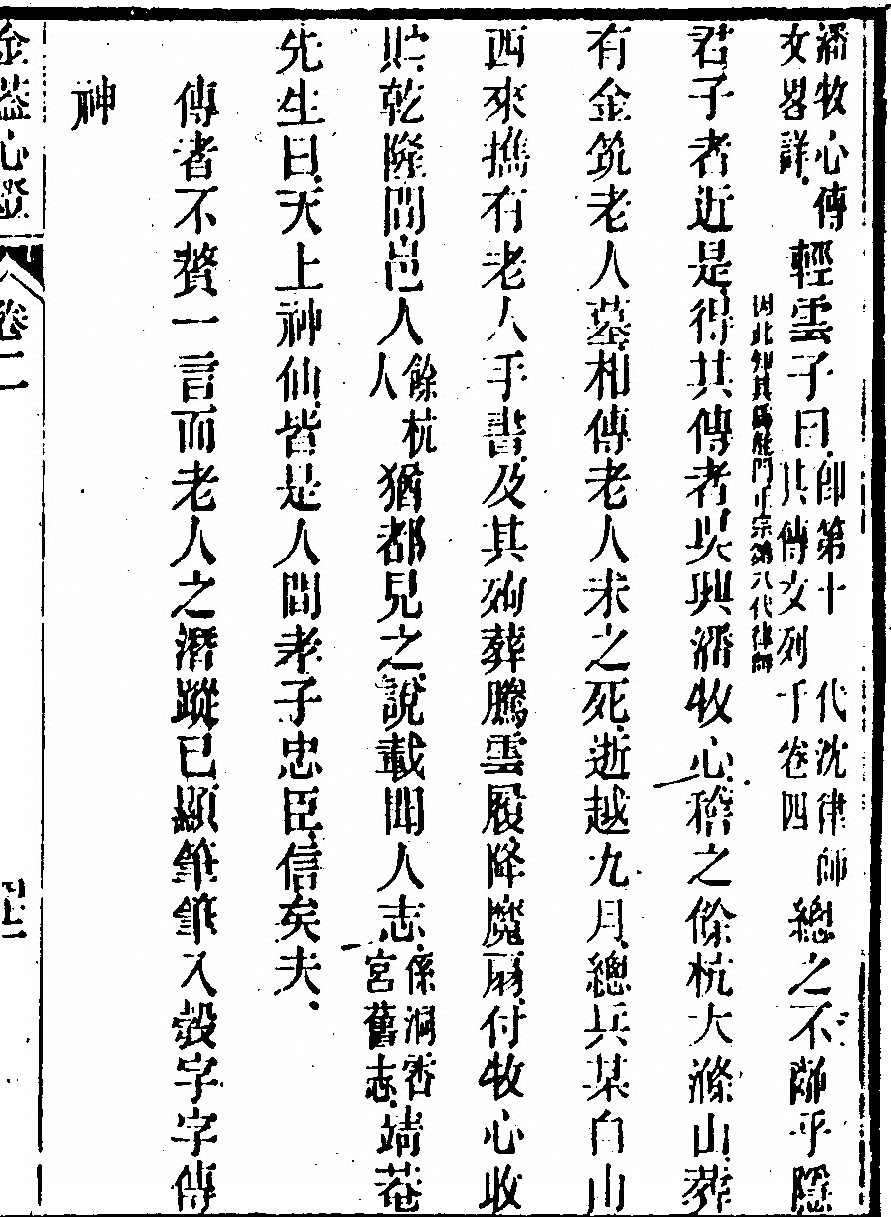 潘牧心傳文畧詳輕雲子曰卽第十代沈律師其傳文列于卷四總之不離乎隱
因此知其爲龍門正宗第八代律師
君子者近是得其傳者吳興潘牧心稽之餘杭大滌山葬
有金筑老人墓相傳老人未之死逝越九月總兵某自山
西來攜有老人手書及其殉葬騰雲履降魔扇付牧心收
貯乾隆間邑人餘杭人猶都見之說載聞人志係洞霄宮舊志靖菴
先生曰天上神仙皆是人間孝子忠臣信矣夫
傳者不贅一言而老人之潛蹤已顯筆筆入彀字字傳
神
金蓋心燈
卷二